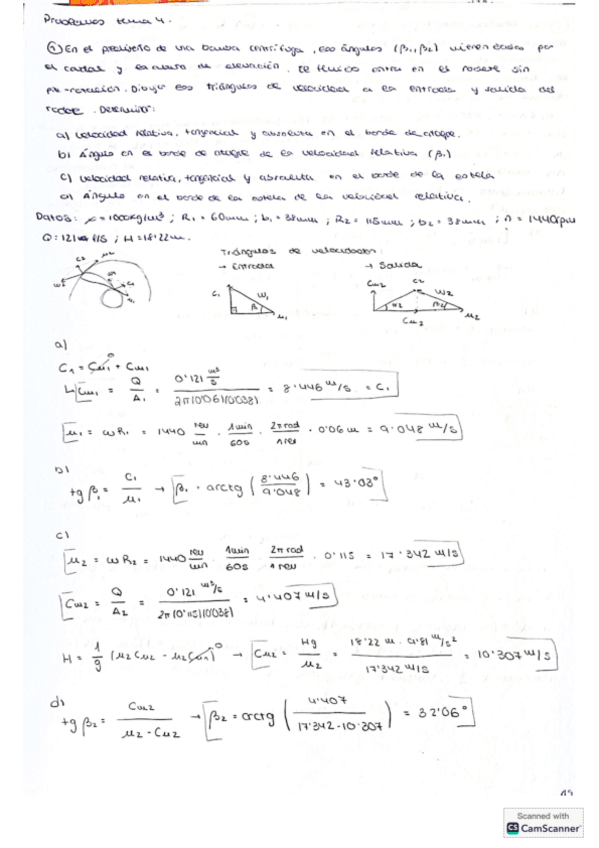 Problemas tema 4.
① En el prediseño de una bomba centrífuga, los ángulos (β₁, β₂) vienen dados por
el caudal y la altura de elevación. El fluido entra en el rodete sin
pre-rotación. Dibuje los triángulos de velocidad a la entrada y salida del
rodete. Determinar:
a) Velocidad relativa, tangencial y absoluta en el borde de ataque.
b) Ángulo en el borde de ataque de la velocidad relativa (β₁)
c) Velocidad relativa, tangencial y absoluta en el borde de la estela
d) Ángulo en el borde de la estela de la velocidad relativa.
Datos: ρ = 1000kg/m³ ; R₁ = 60mm ; b₁ = 38mm ; R₂ = 115mm ; b₂ = 38mm ; n = 1440rpm
Q = 121 l/s ; H = 18'22 m.
Triángulos de velocidades:
→ Entrada → Salida
c₁ w₁ β₁ u₁ Cm₂ c₂ w₂ α₂ β₂ u₂ Cu₂
a)
C₁ = Cu₁⁰ + Cm₁
Cm₁ = Q/A₁ = 0'121 m³/s / 2π(0'06)(0'038) = 8'446 m/s = C₁
u₁ = ωR₁ = 1440 rev/min · 1min/60s · 2π rad/1 rev · 0'06 m = 9'048 m/s
b)
tg β₁ = C₁/u₁ → β₁ = arctg (8'446/9'048) = 43'03°
c)
u₂ = ωR₂ = 1440 rev/min · 1min/60s · 2π rad/1 rev · 0'115 = 17'342 m/s
Cm₂ = Q/A₂ = 0'121 m³/s / 2π(0'115)(0'038) = 4'407 m/s
H = 1/g (u₂Cu₂ - u₁Cu₁⁰) → Cu₂ = Hg/u₂ = 18'22 m · 9'81 m/s² / 17'342 m/s = 10'307 m/s
d)
tg β₂ = Cm₂/(u₂ - Cu₂) → β₂ = arctg (4'407/(17'342-10'307)) = 32'06°
Scanned with
CS CamScanner